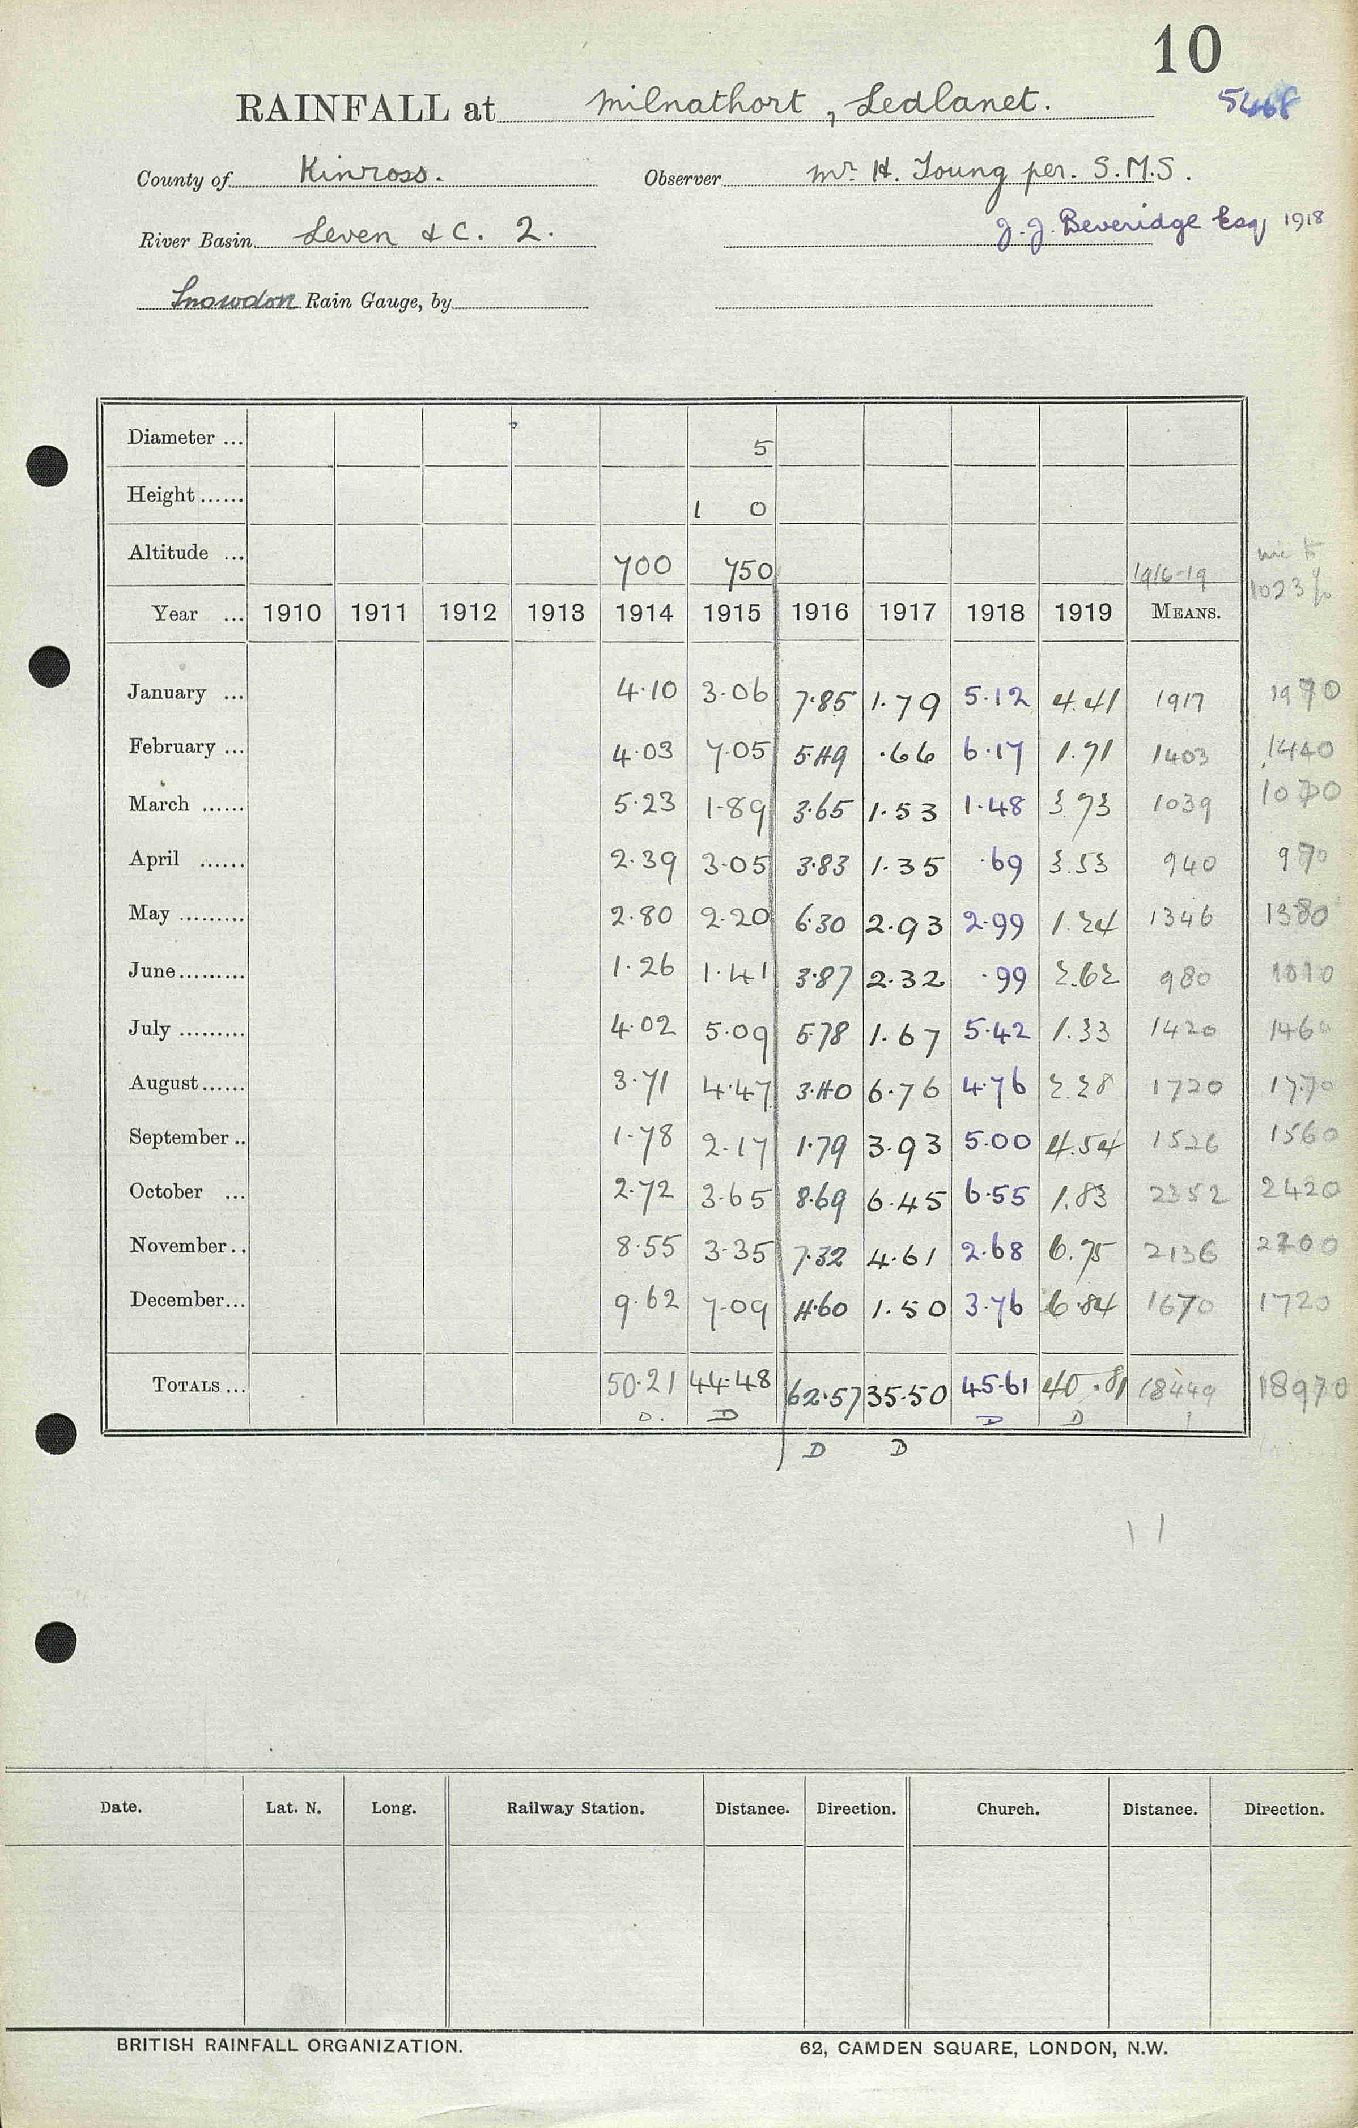 10
RAINFALL at Milnathort, Ledlanet. 5468
County of Kinross. Observer Mr. H. Young per. S.M.S.
River Basin Leven & C. 2. J. J. Beveridge Esq 1918
Snowdon Rain Gauge, by
Diameter ... 5
Height...... 1 0
Altitude ... 700 750 1916-19
Year ... 1910 1911 1912 1913 1914 1915 1916 1917 1918 1919 MEANS. 1023
January ... 4.10 3.06 7.85 1.79 5.12 4.41 1917 1970
February ... 4.03 7.05 5.49 .66 6.17 1.71 1403 1440
March ...... 5.23 1.89 3.65 1.53 1.48 3.73 1039 1070
April ...... 2.39 3.05 3.83 1.35 .69 3.53 940 970
May ......... 2.80 2.20 6.30 2.93 2.99 1.24 1346 1380
June......... 1.26 1.41 3.87 2.32 .99 2.62 980 1010
July ......... 4.02 5.09 5.78 1.67 5.42 1.33 1420 1460
August...... 3.71 4.47 3.40 6.76 4.76 2.28 1720 1770
September .. 1.78 2.17 1.79 3.93 5.00 4.54 1526 1560
October ... 2.72 3.65 8.69 6.45 6.55 1.83 2352 2420
November.. 8.55 3.35 7.32 4.61 2.68 6.75 2136 2200
December... 9.62 7.09 4.60 1.50 3.76 6.84 1670 1720
TOTALS ... 50.21 44.48 62.57 35.50 45.61 40.81 18449 18970
D. D D D
D D
Date. Lat. N. Long. Railway Station. Distance. Direction. Church. Distance. Direction.
BRITISH RAINFALL ORGANIZATION. 62, CAMDEN SQUARE, LONDON, N.W.